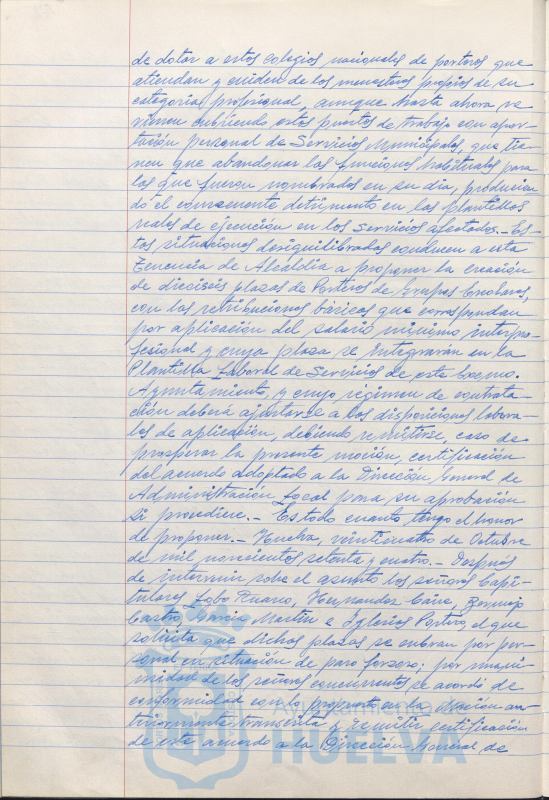 de dotar a estos colegios nacionales de porteros que
atiendan y cuiden de los menesteres propios de su
categoría profesional, aunque hasta ahora se
vienen cubriendo estos puestos de trabajo con apor-
tación personal de Servicios Municipales, que tie-
nen que abandonar las funciones habituales para
las que fueron nombrados en su día, producien
do el consecuente detrimento en las plantillas
reales de ejecución en los Servicios afectados.- Es-
tas situaciones desequilibradas conducen a esta
Tenencia de Alcaldía a proponer la creación
de dieciséis plazas de Porteros de Grupos Escolares,
con las retribuciones básicas que correspondan
por aplicación del salario mínimo interpro-
fesional y cuya plaza se integrarán en la
Plantilla Laboral de Servicios de este Excmo.
Ayuntamiento, y cuyo régimen de contrata-
ción deberá ajustarse a las disposiciones labora-
les de aplicación, debiendo remitirse, caso de
prosperar la presente moción, certificación
del acuerdo adoptado a la Dirección General de
Administración Local para su aprobación
si procediere.- Es todo cuanto tengo el honor
de proponer.- Huelva, veinticuatro de Octubre
de mil novecientos setenta y cuatro.- Después
de intervenir sobre el asunto los señores Capi-
tulares Lobo Duano, Hernández Cano, Bermejo
Castro, García Martín e Iglesias Portero, el que
solicita que dichas plazas se cubran por per-
sonal en situación de paro forzoso; por unani-
midad de los señores concurrentes se acordó de
conformidad con lo propuesto en la Moción an-
teriormente transcrita y remitir certificación
de este acuerdo a la Dirección General de
Ayuntamiento
HUELVA